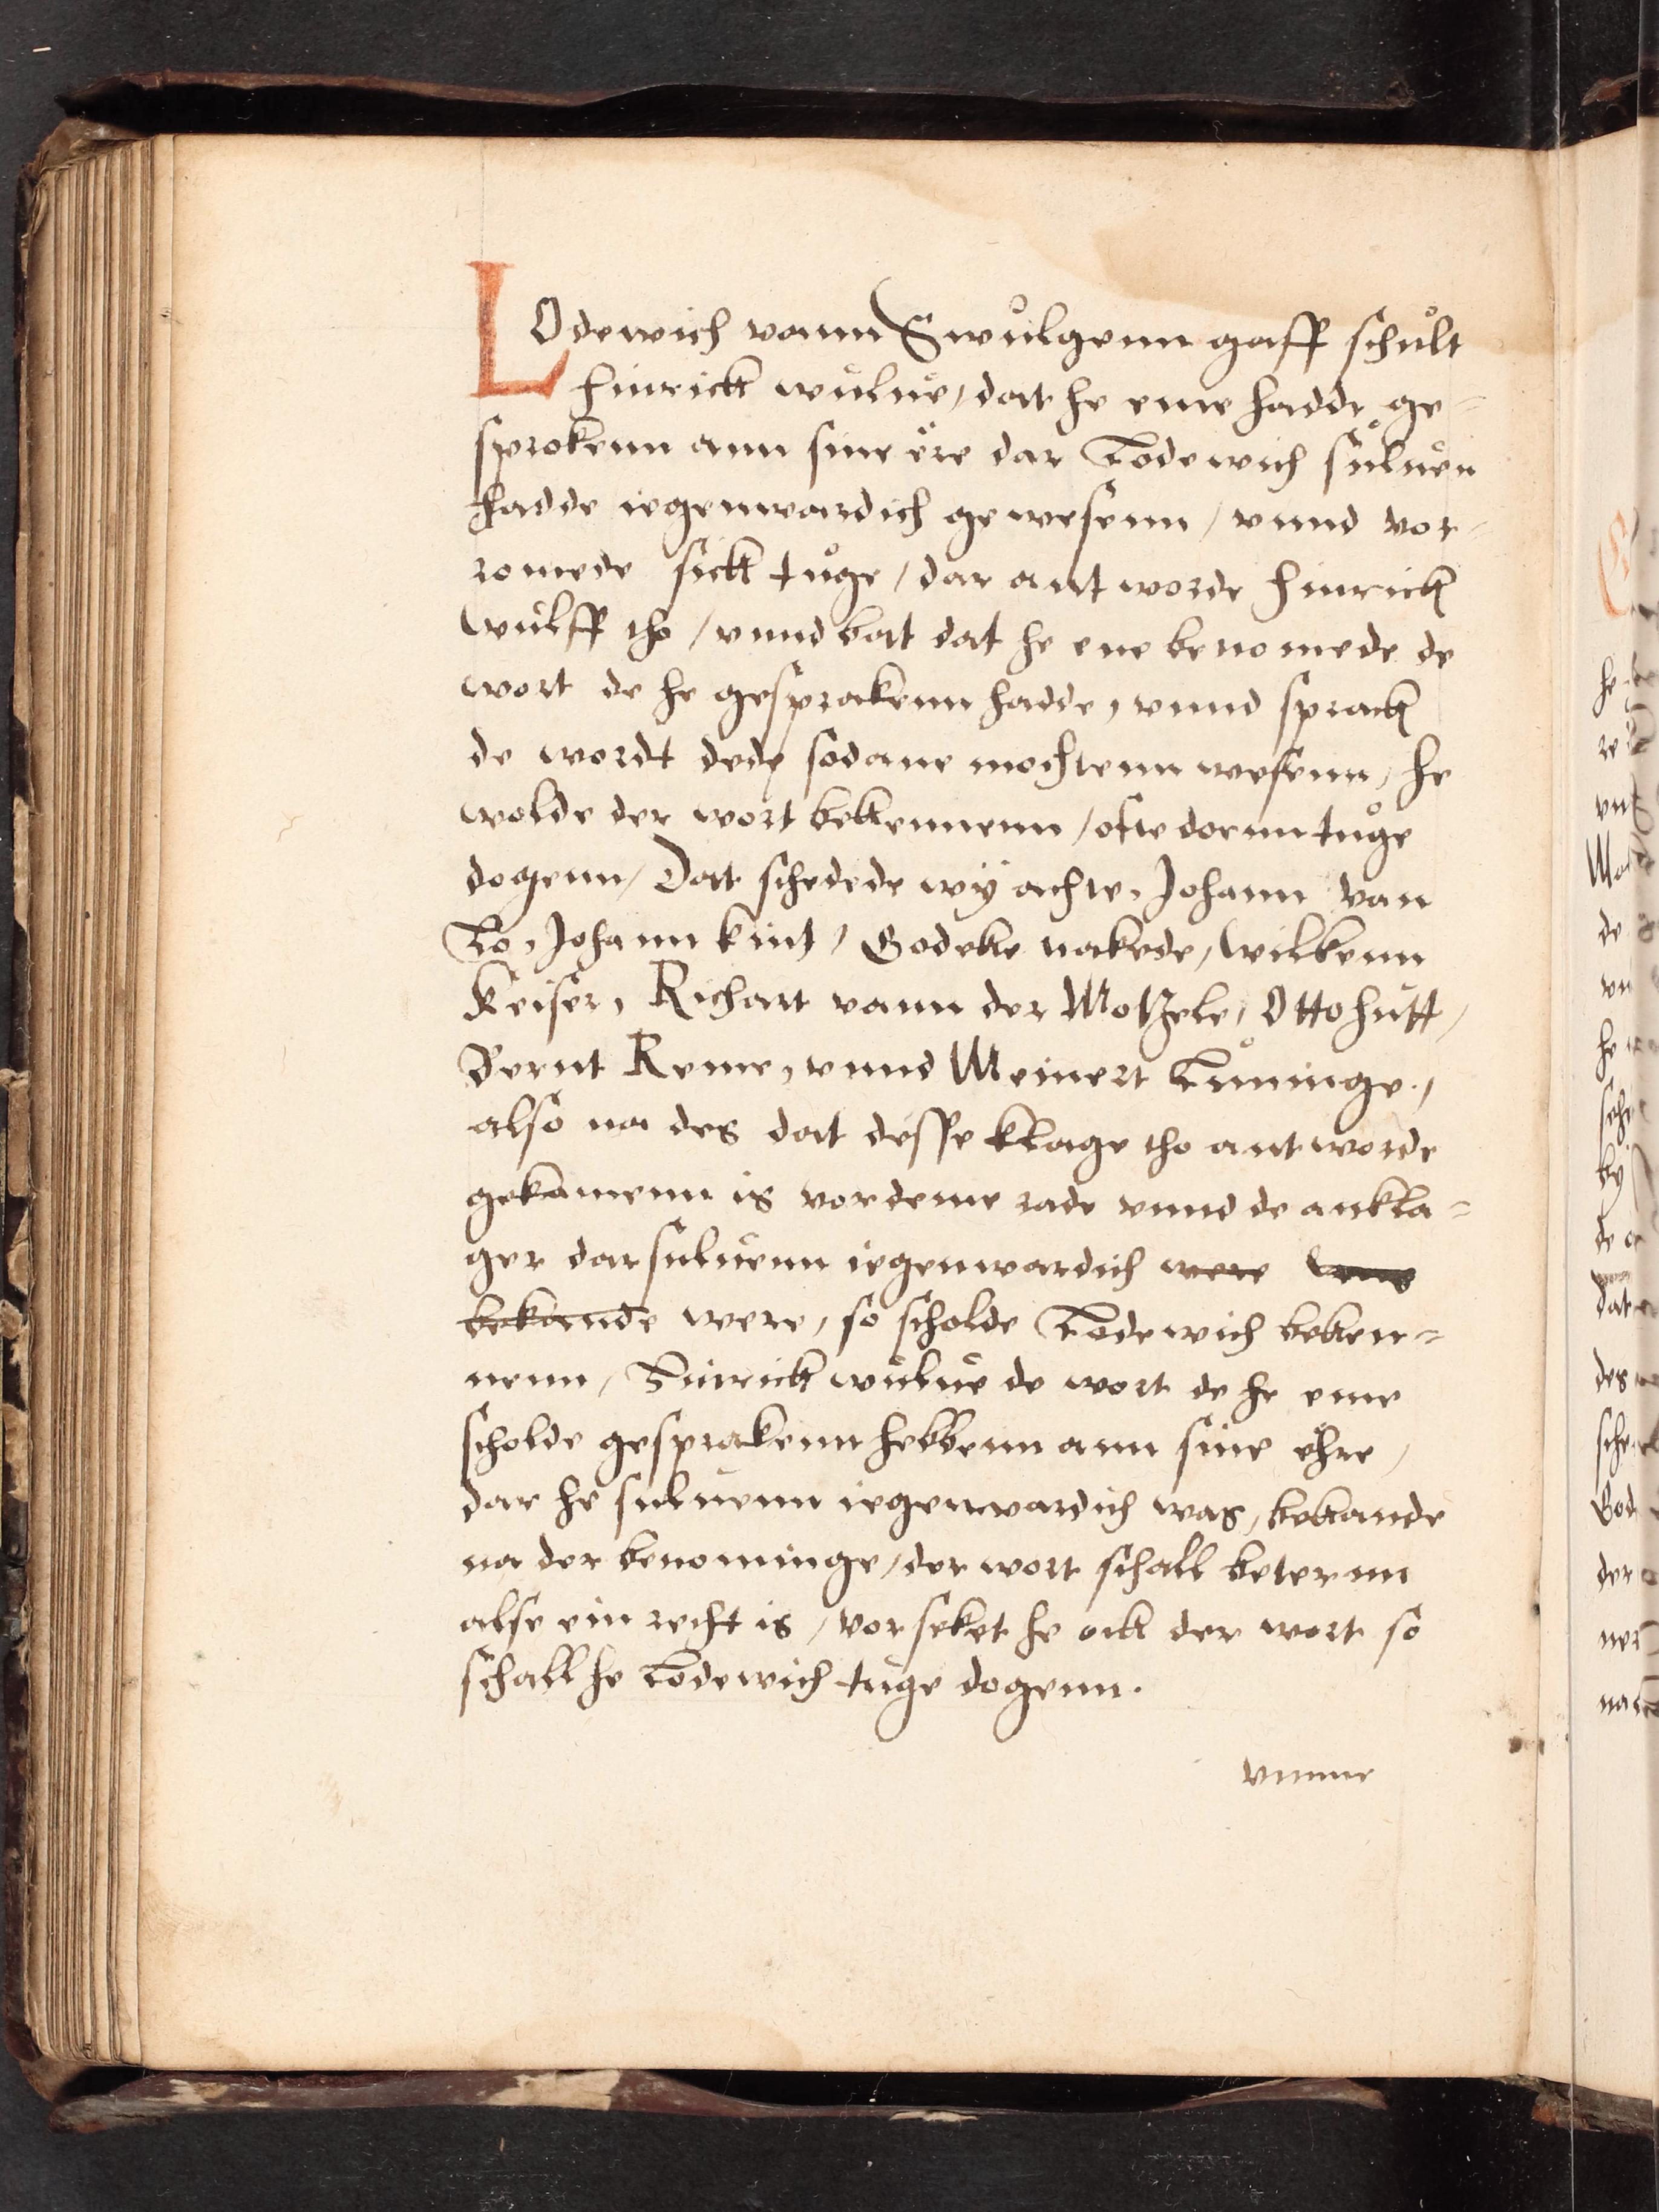 LOdewich vann Swůlgenn gaff schůlt
Hinrick wůlue, dat he eme hadde ge=
sprokenn ann sine ere dar Lodewich sůluen
hadde iegenwardich gewesenn / vnnd vor=
romede sick tůge / dar antworde Hinrick
wůlff tho / vnnd bat dat he eme benomede de
wort de he gesprakenn hadde, vnnd sprack
de wordt dede sodane mochtenn wesenn, he
wolde der wort bekennenn / ofte doenn tuge
dogenn / Dat schedede wÿ achte, Johann van
Lo, Johann kint / Godeke nakede, wilkenn
Keiser, Richart vann der Motzele, Otto hutt,
Bernt Reme, vnnd Meinert Lůninge,
also na des dat desse klage tho antworde
gekamenn is vordeme rade vnnd de ankla=
ger darsuluenn iegenwardich were
bekande were, so scholde Lodewich beken=
nenn, Hinrick wůlue de wort de he eme
scholde gesprakenn hebbenn ann sine ehre,
dar he suluenn iegenwardich was, bekande
na der benominge, der wort schall beterenn
alse ein recht is, vorseket he ock der wort so
schall he Lodewich tuge dogenn.
vmme